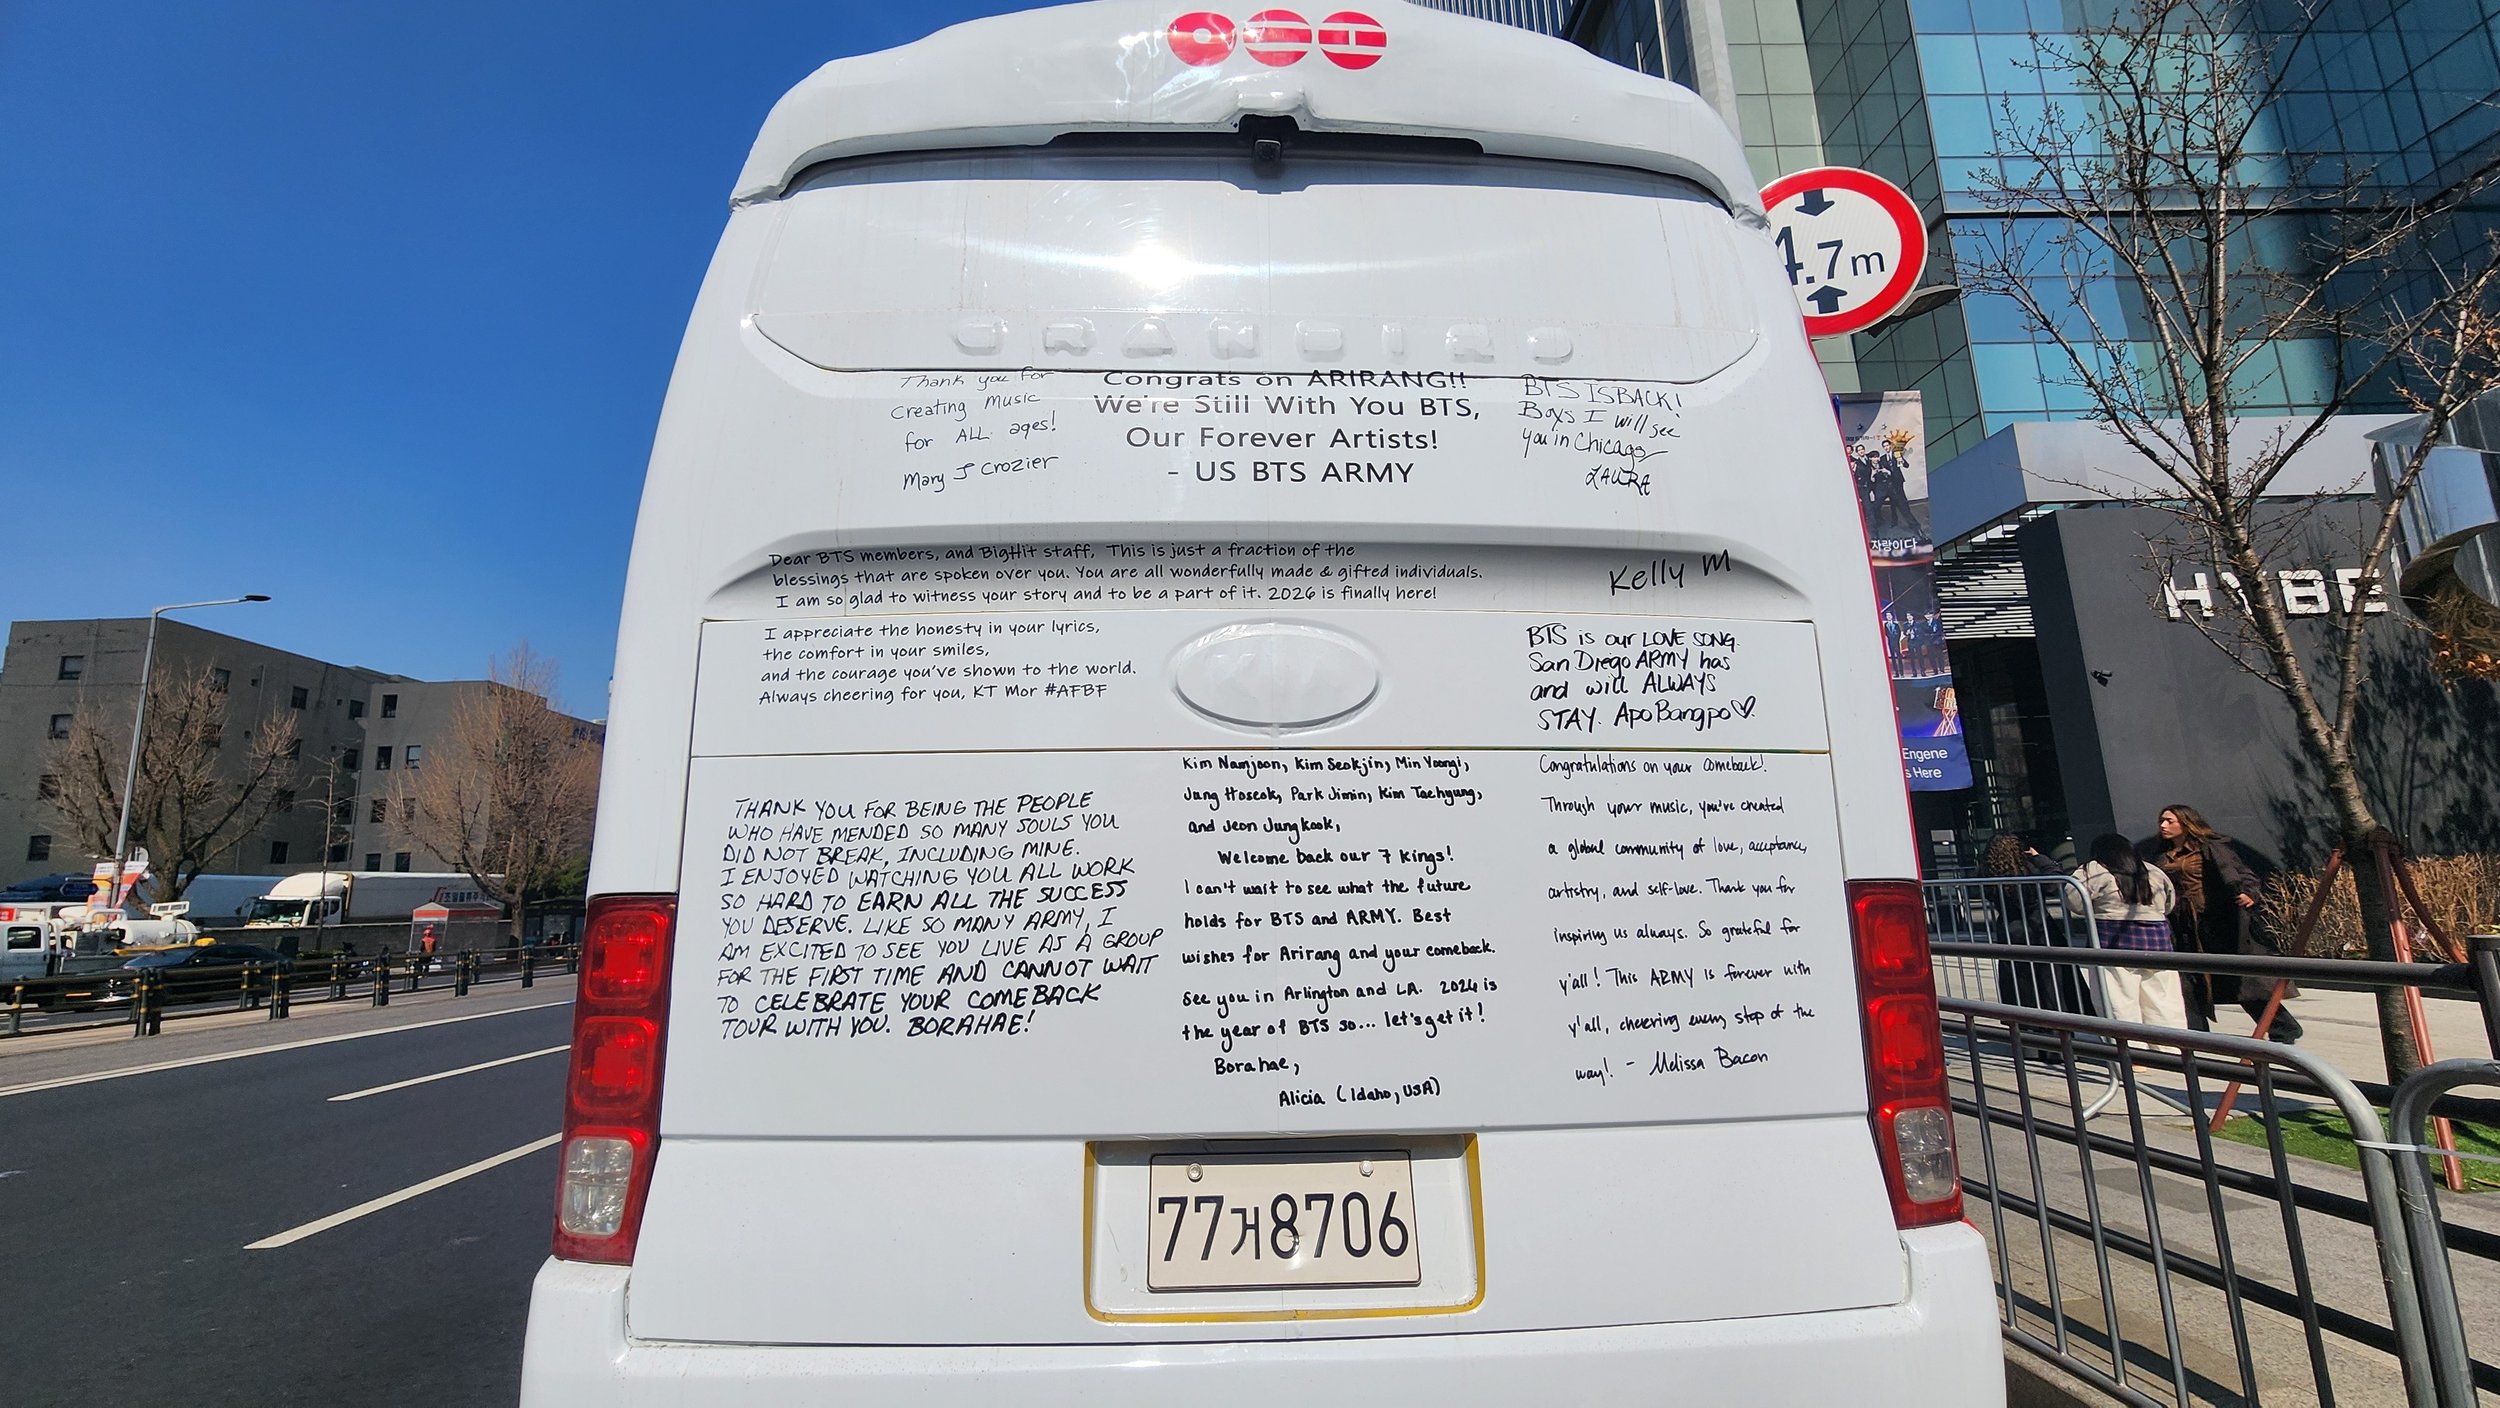 GRANBIRD
4.7m
Thank you for
Creating music
for ALL ages!
Mary J Crozier
Congrats on ARIRANG!!
We're Still With You BTS,
Our Forever Artists!
- US BTS ARMY
BTS IS BACK!
Boys I will see
you in Chicago
LAURA
Dear BTS members, and BigHit staff, This is just a fraction of the
blessings that are spoken over you. You are all wonderfully made & gifted individuals.
I am so glad to witness your story and to be a part of it. 2026 is finally here!
Kelly M
I appreciate the honesty in your lyrics,
the comfort in your smiles,
and the courage you've shown to the world.
Always cheering for you, KT Mor #AFBF
BTS is our LOVE SONG.
San Diego ARMY has
and will ALWAYS
STAY. Apo Bangpo♡.
THANK YOU FOR BEING THE PEOPLE
WHO HAVE MENDED SO MANY SOULS YOU
DID NOT BREAK, INCLUDING MINE.
I ENJOYED WATCHING YOU ALL WORK
SO HARD TO EARN ALL THE SUCCESS
YOU DESERVE. LIKE SO MANY ARMY, I
AM EXCITED TO SEE YOU LIVE AS A GROUP
FOR THE FIRST TIME AND CANNOT WAIT
TO CELEBRATE YOUR COMEBACK
TOUR WITH YOU. BORAHAE!
Kim Namjoon, Kim Seokjin, Min Yoongi,
Jung Hoseok, Park Jimin, Kim Taehyung,
and Jeon Jungkook,
Welcome back our 7 kings!
I can't wait to see what the future
holds for BTS and ARMY. Best
wishes for Arirang and your comeback.
See you in Arlington and LA. 2026 is
the year of BTS so... let's get it!
Borahae,
Alicia (Idaho, USA)
Congratulations on your comeback!
Through your music, you've created
a global community of love, acceptance,
artistry, and self-love. Thank you for
inspiring us always. So grateful for
y'all! This ARMY is forever with
y'all, cheering every step of the
way! - Melissa Bacon
77거8706
자랑이다
HYBE
Engene
s Here